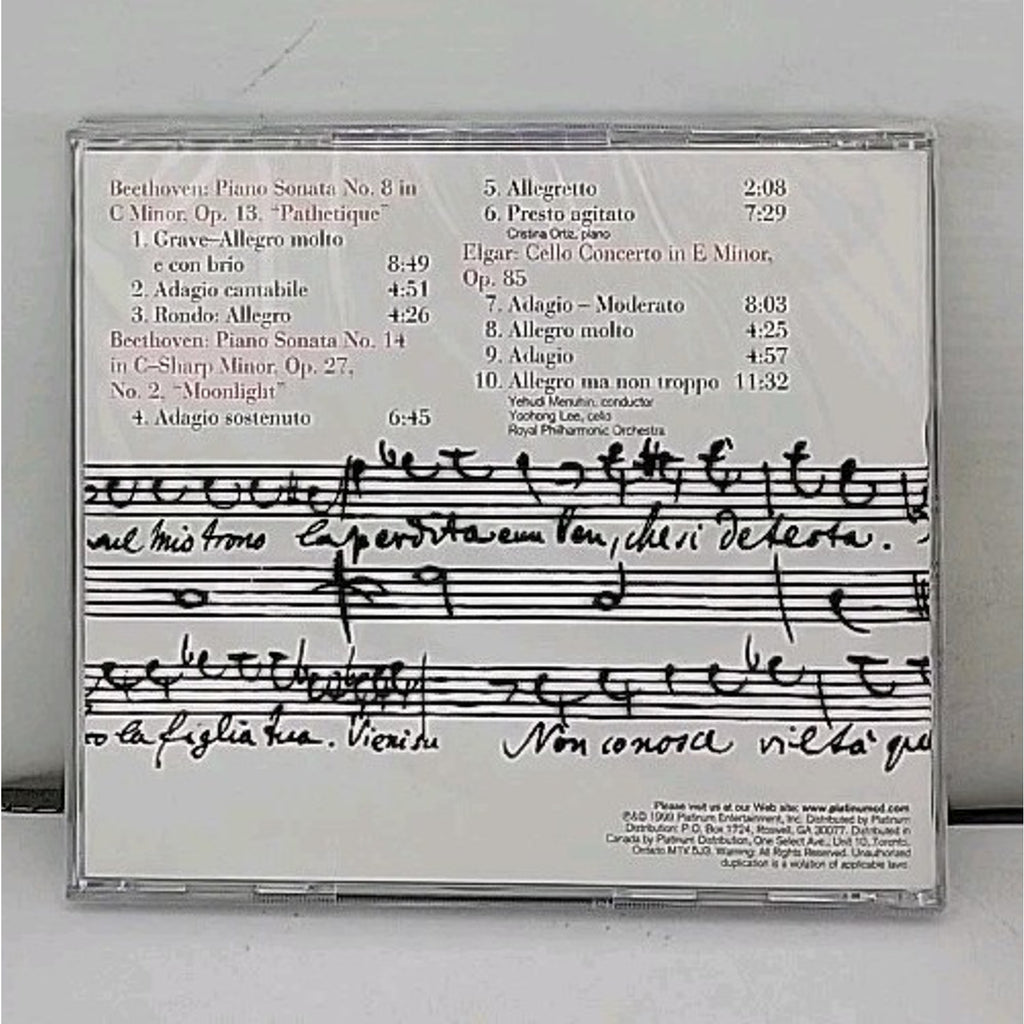 Beethoven: Piano Sonata No. 8 in
C Minor, Op. 13, "Pathetique"
1. Grave–Allegro molto
e con brio 8:49
2. Adagio cantabile 4:51
3. Rondo: Allegro 4:26
Beethoven: Piano Sonata No. 14
in C–Sharp Minor, Op. 27,
No. 2, "Moonlight"
4. Adagio sostenuto 6:45
5. Allegretto 2:08
6. Presto agitato 7:29
Cristina Ortiz, piano
Elgar: Cello Concerto in E Minor,
Op. 85
7. Adagio – Moderato 8:03
8. Allegro molto 4:25
9. Adagio 4:57
10. Allegro ma non troppo 11:32
Yehudi Menuhin, conductor
Yoohong Lee, cello
Royal Philharmonic Orchestra
mio trono la perdita che si detesta.
la figlia tua. Vieni su Non conosci viltà
Please visit us at our Web site: www.platinumcd.com
℗&© 1999 Platinum Entertainment, Inc. Distributed by Platinum
Distribution: P.O. Box 1724, Roswell, GA 30077. Distributed in
Canada by Platinum Distribution, One Select Ave., Unit 10, Toronto,
Ontario M1V 5J3. Warning: All Rights Reserved. Unauthorized
duplication is a violation of applicable laws.